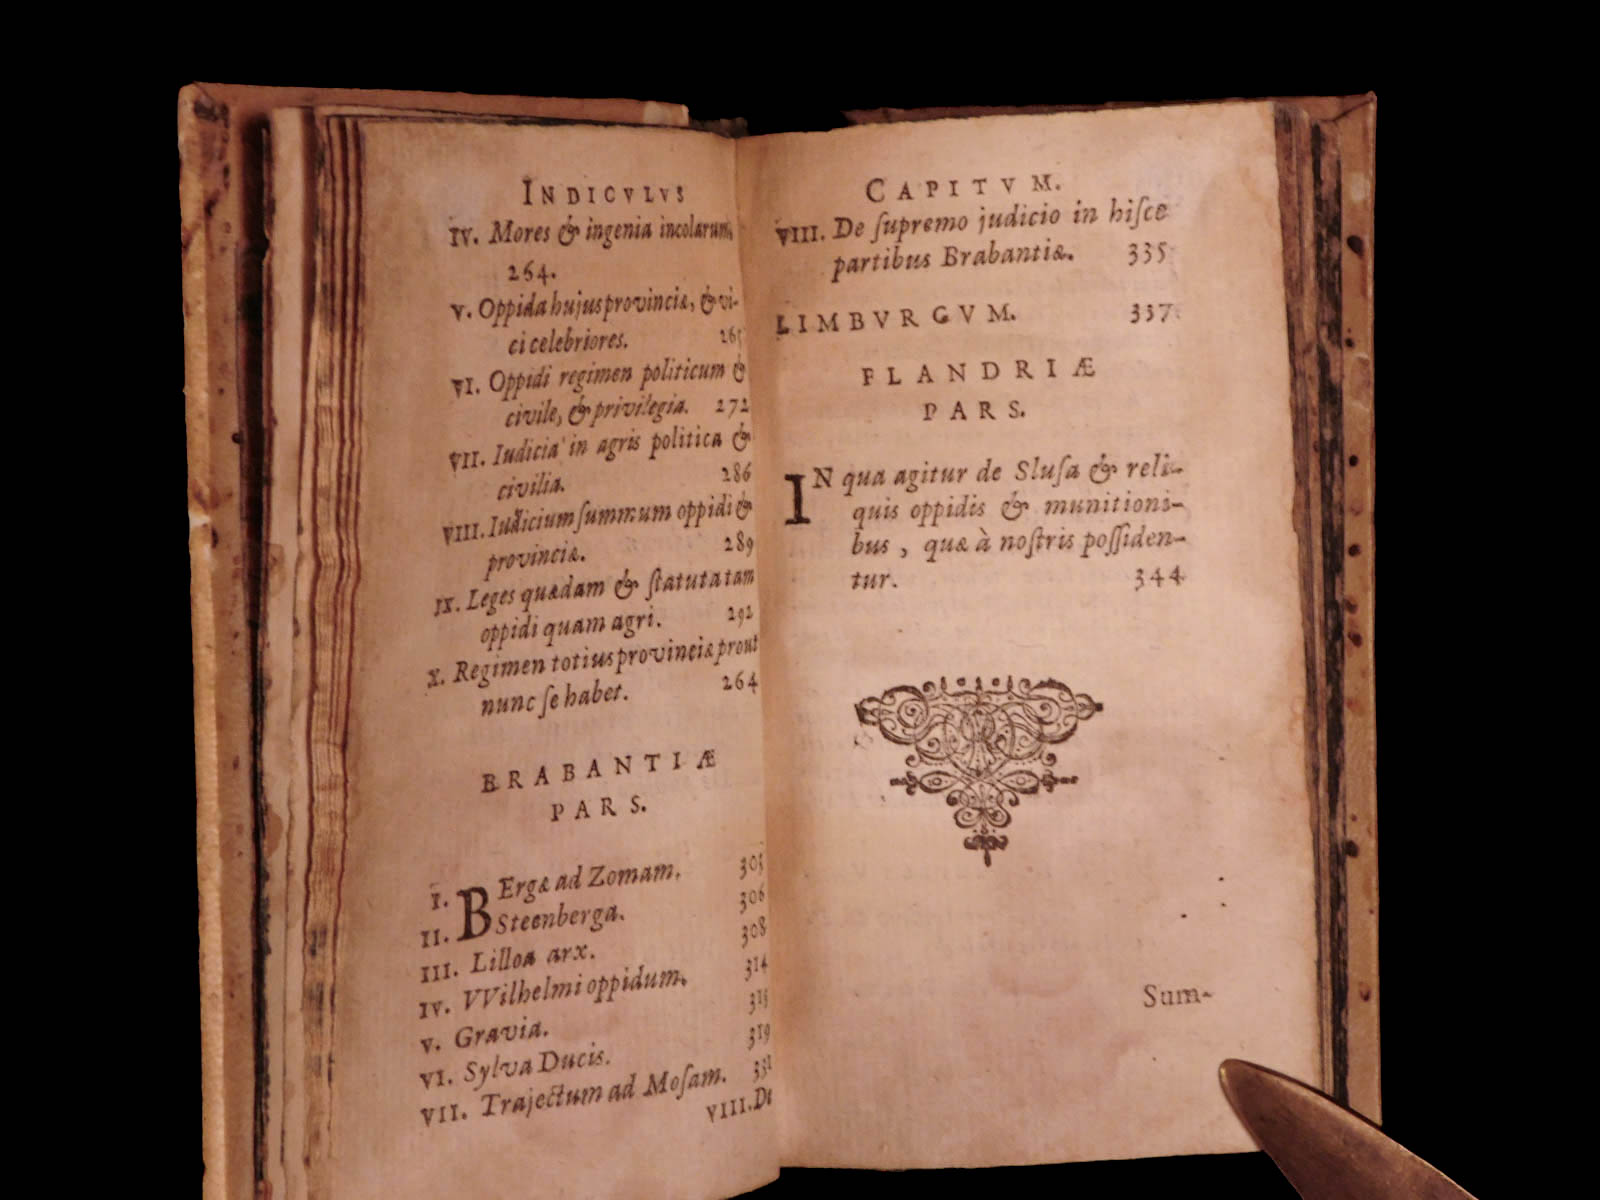 INDICVLVS
IV. Mores & ingenia incolarum.
264.
V. Oppida hujus provinciæ, & vi-
ci celebriores. 265
VI. Oppidi regimen politicum &
civile, & privilegia. 272
VII. Iudicia in agris politica &
civilia. 286
VIII. Iudicium ſummum oppidi &
provinciæ. 289
IX. Leges quædam & ſtatuta tam
oppidi quam agri. 292
X. Regimen totius provinciæ prout
nunc ſe habet. 264
BRABANTIÆ
PARS.
I. BErgæ ad Zomam. 303
II. Steenberga. 306
III. Lilloa arx. 308
IV. VVilhelmi oppidum. 314
V. Gravia. 315
VI. Sylva Ducis. 319
VII. Trajectum ad Moſam. 331
VIII. De
CAPITVM.
VIII. De ſupremo judicio in hiſce
partibus Brabantiæ. 335
LIMBVRGVM. 337
FLANDRIÆ
PARS.
IN qua agitur de Sluſa & reli-
quis oppidis & munitioni-
bus, quæ à noſtris poſſiden-
tur. 344
Sum-